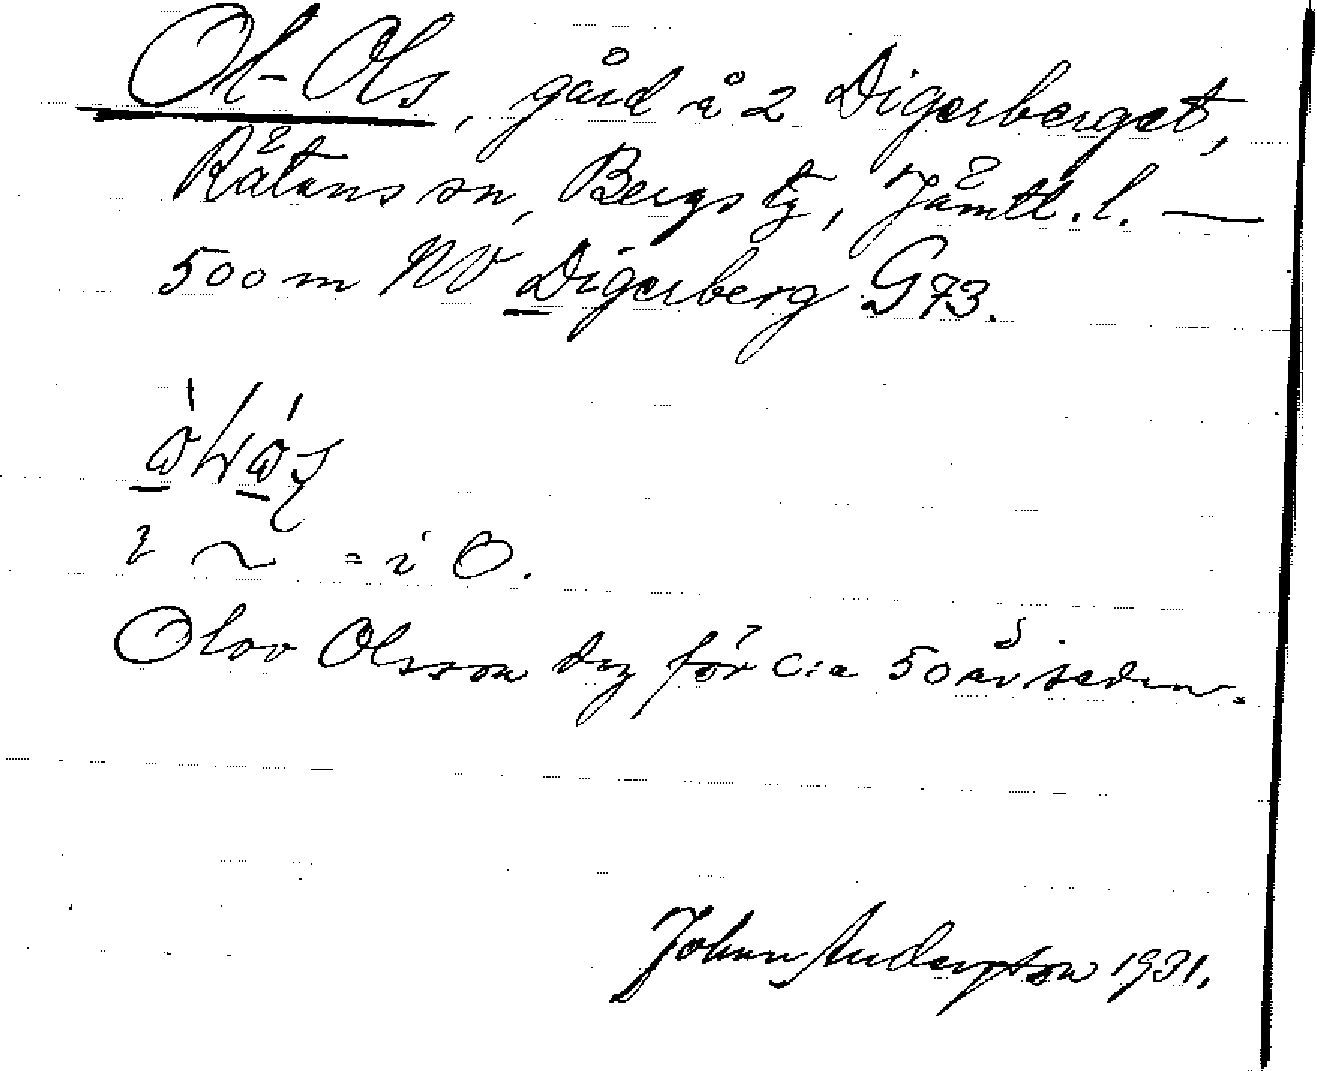 Ol-Ols, gård å 2 Digerberget,
Rätans sn, Bergs tg, Jämtl. l. —
500 m NV Digerberg G73.
i ~ = i O.
Olov Olsson dog för c:a 50 år sedan.
Johan Andersson 1931.